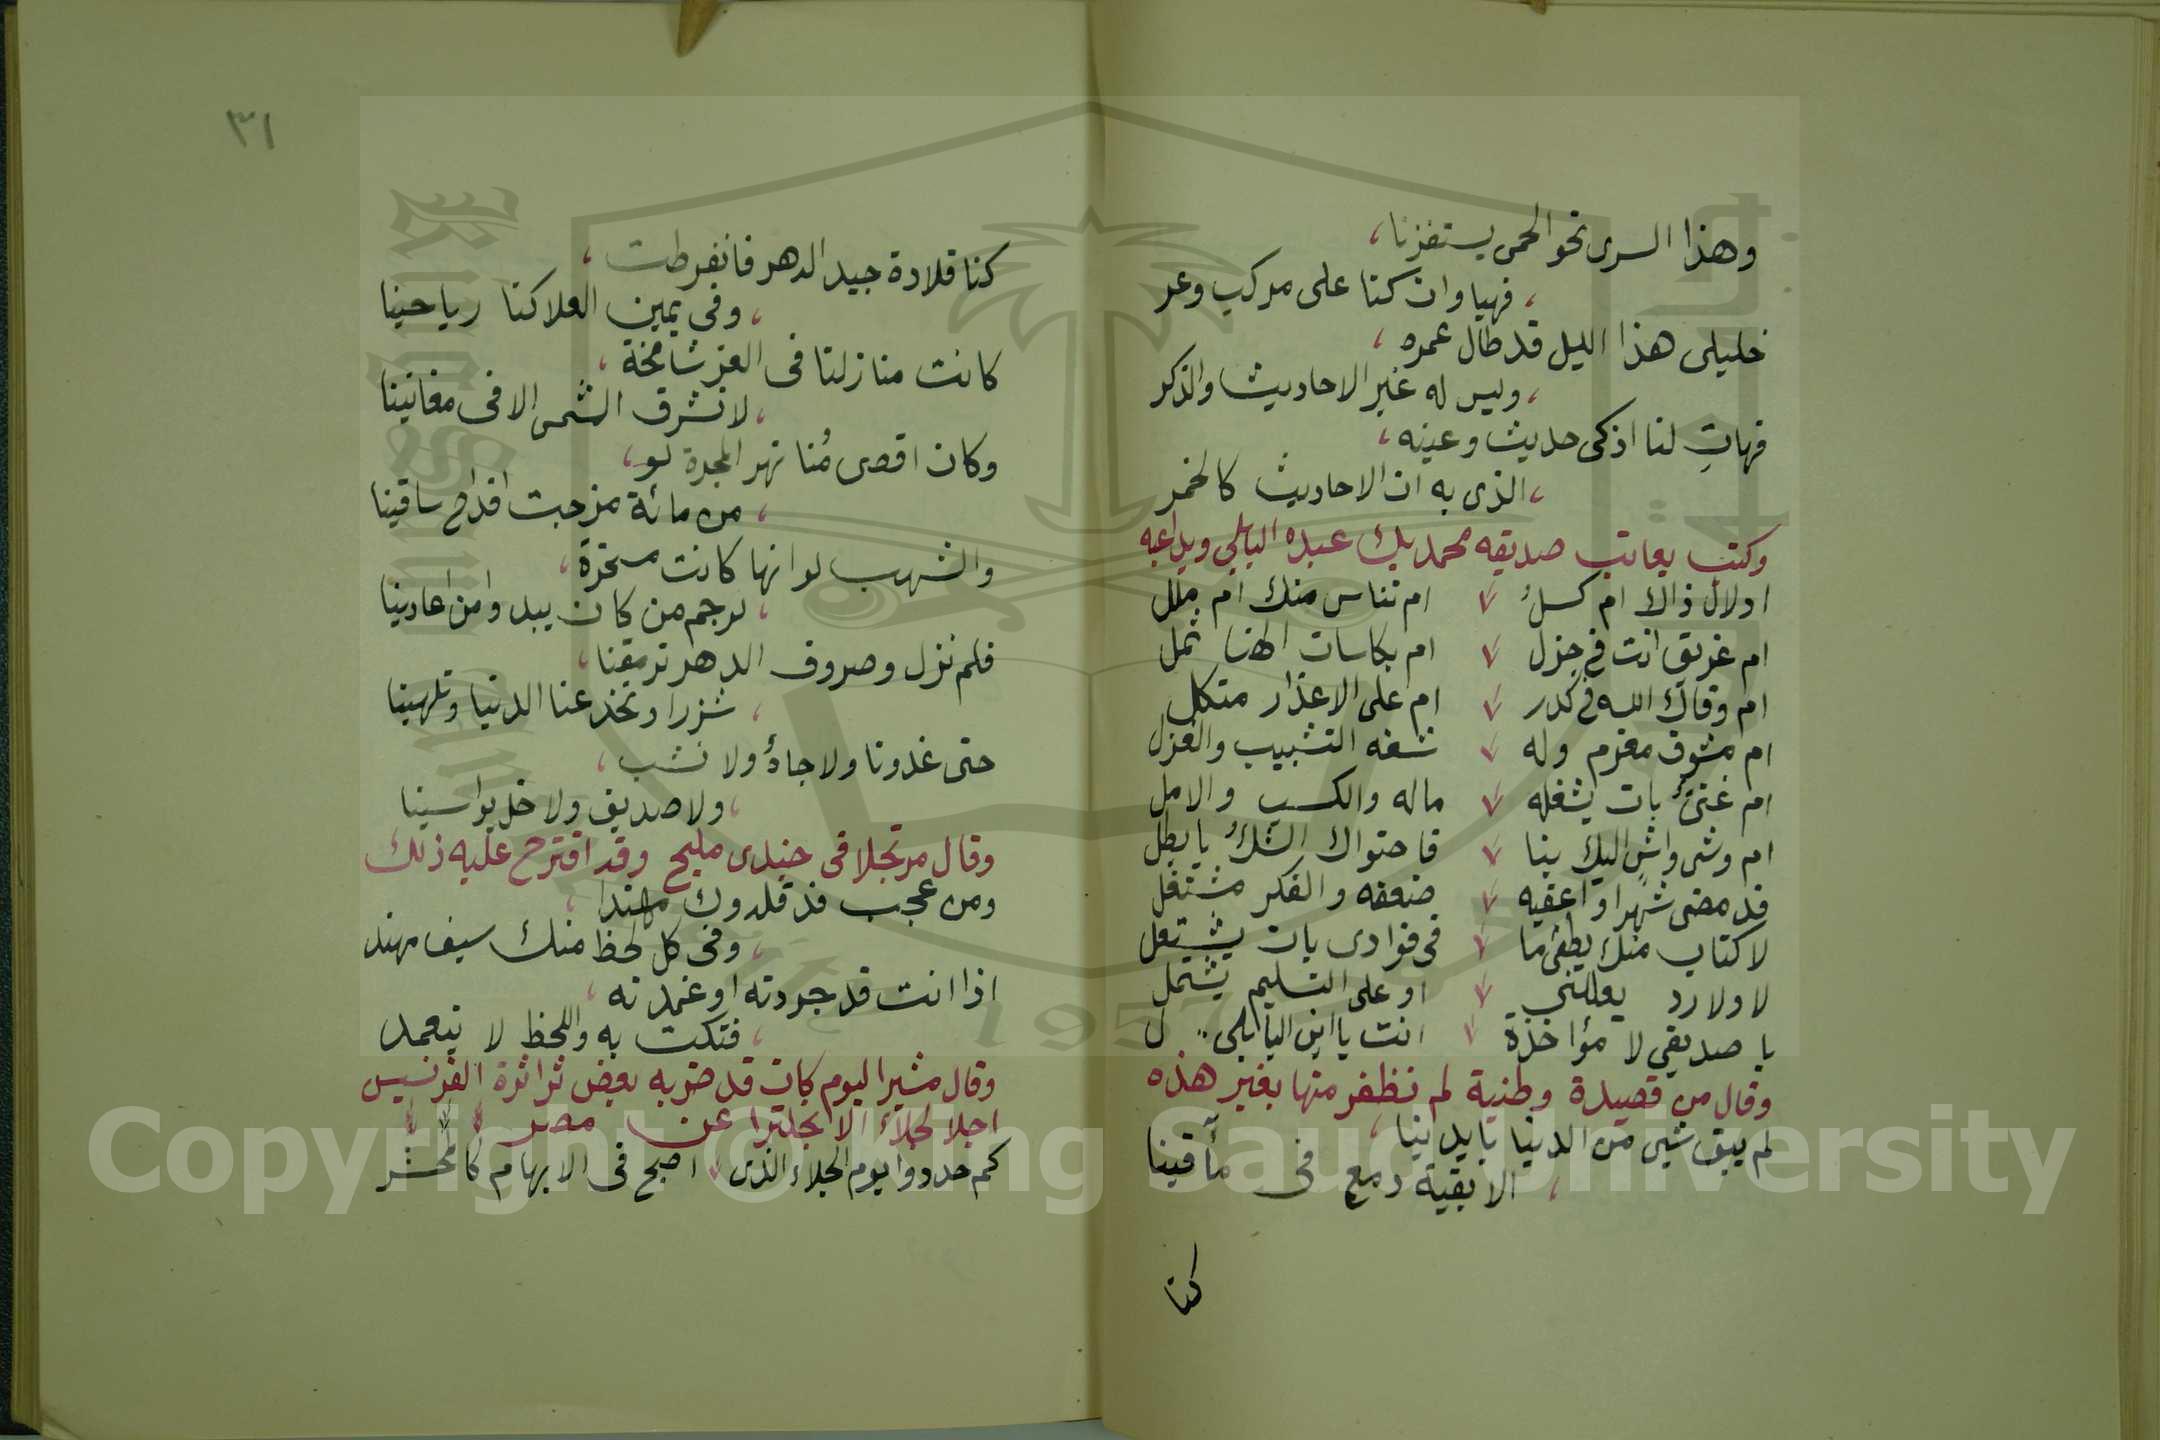 وهذا السرى نحو الحمى يستفزنا،
، فهيا وان كنا على مركب وعر
خليلى هذا الليل قد طال عمره ،
، وليس له غير الاحاديث والذكر
فهاتِ لنا اذكى حديث وعينه ،
، الذى به ان الاحاديث كالخمر
وكتب يعاتب صديقه محمد بيك عبده البابلي ويداعبه
ادلال ذاك ام كسلُ ام تناس منك ام ملل
ام غريق انت فى جزل ام بكاسات الهنا ثمل
ام وقاك الله فى كدر ام على الاعذار متكل
ام مشوق مغرم وله شفه التشبيب والغزل
ام غنىٌ بات يشغله ماله والكسب والامل
ام وشى واشٍ اليك بنا فاحتواك الشكُ يا بطل
قد مضى شهر اواعقبه ضعفه والفكر مشتغل
لا كتاب منك يطفئ ما فى فوادى بات يشتعل
لا ولا رد يعللنى او على التسليم يشتمل
يا صديقى لا مؤاخذة انت يا ابن البابلى .. ل
وقال من قصيدة وطنية لم نظفر منها بغير هذه
لم يبق شيى من الدنيا بايدينا ،
، الا بقية دمع فى مآقينا
كنا
٣١
كنا قلادة جيد الدهر فانفرطت ،
، وفى يمين العلا كنا رياحينا
كانت منازلنا فى العز شامخة ،
، لا تشرق الشمس الا فى مغانينا
وكان اقصى مُنا نهر المجرة لو ،
، من مائة مزجت اقداح ساقينا
والشهب لو انها كانت مسخرة ،
، لرجم من كان يبدوا من اعادينا
فلم نزل وصروف الدهر ترمقنا ،
، شزرا وتخدعنا الدنيا وتلهينا
حتى غدونا ولا جاهٌ ولا نشب ،
، ولا صديق ولا خل يواسينا
وقال مرتجلا فى جندى مليح وقد اقترح عليه ذلك
ومن عجب قد قلدوك مهندا ،
، وفى كل لحظ منك سيف مهند
اذا انت قد جردته او غمدته ،
، فتكت به واللحظ لا يتعمد
وقال مشيرا ليوم كان قد ضربه بعض ثراثرة الفرنسيس
اجلا لجلاء الانجلترا عن مصر
كم حددوا يوم الجلاء الذى اصبح فى الابهام كالمحشر
Copyright © King Saud University
1957